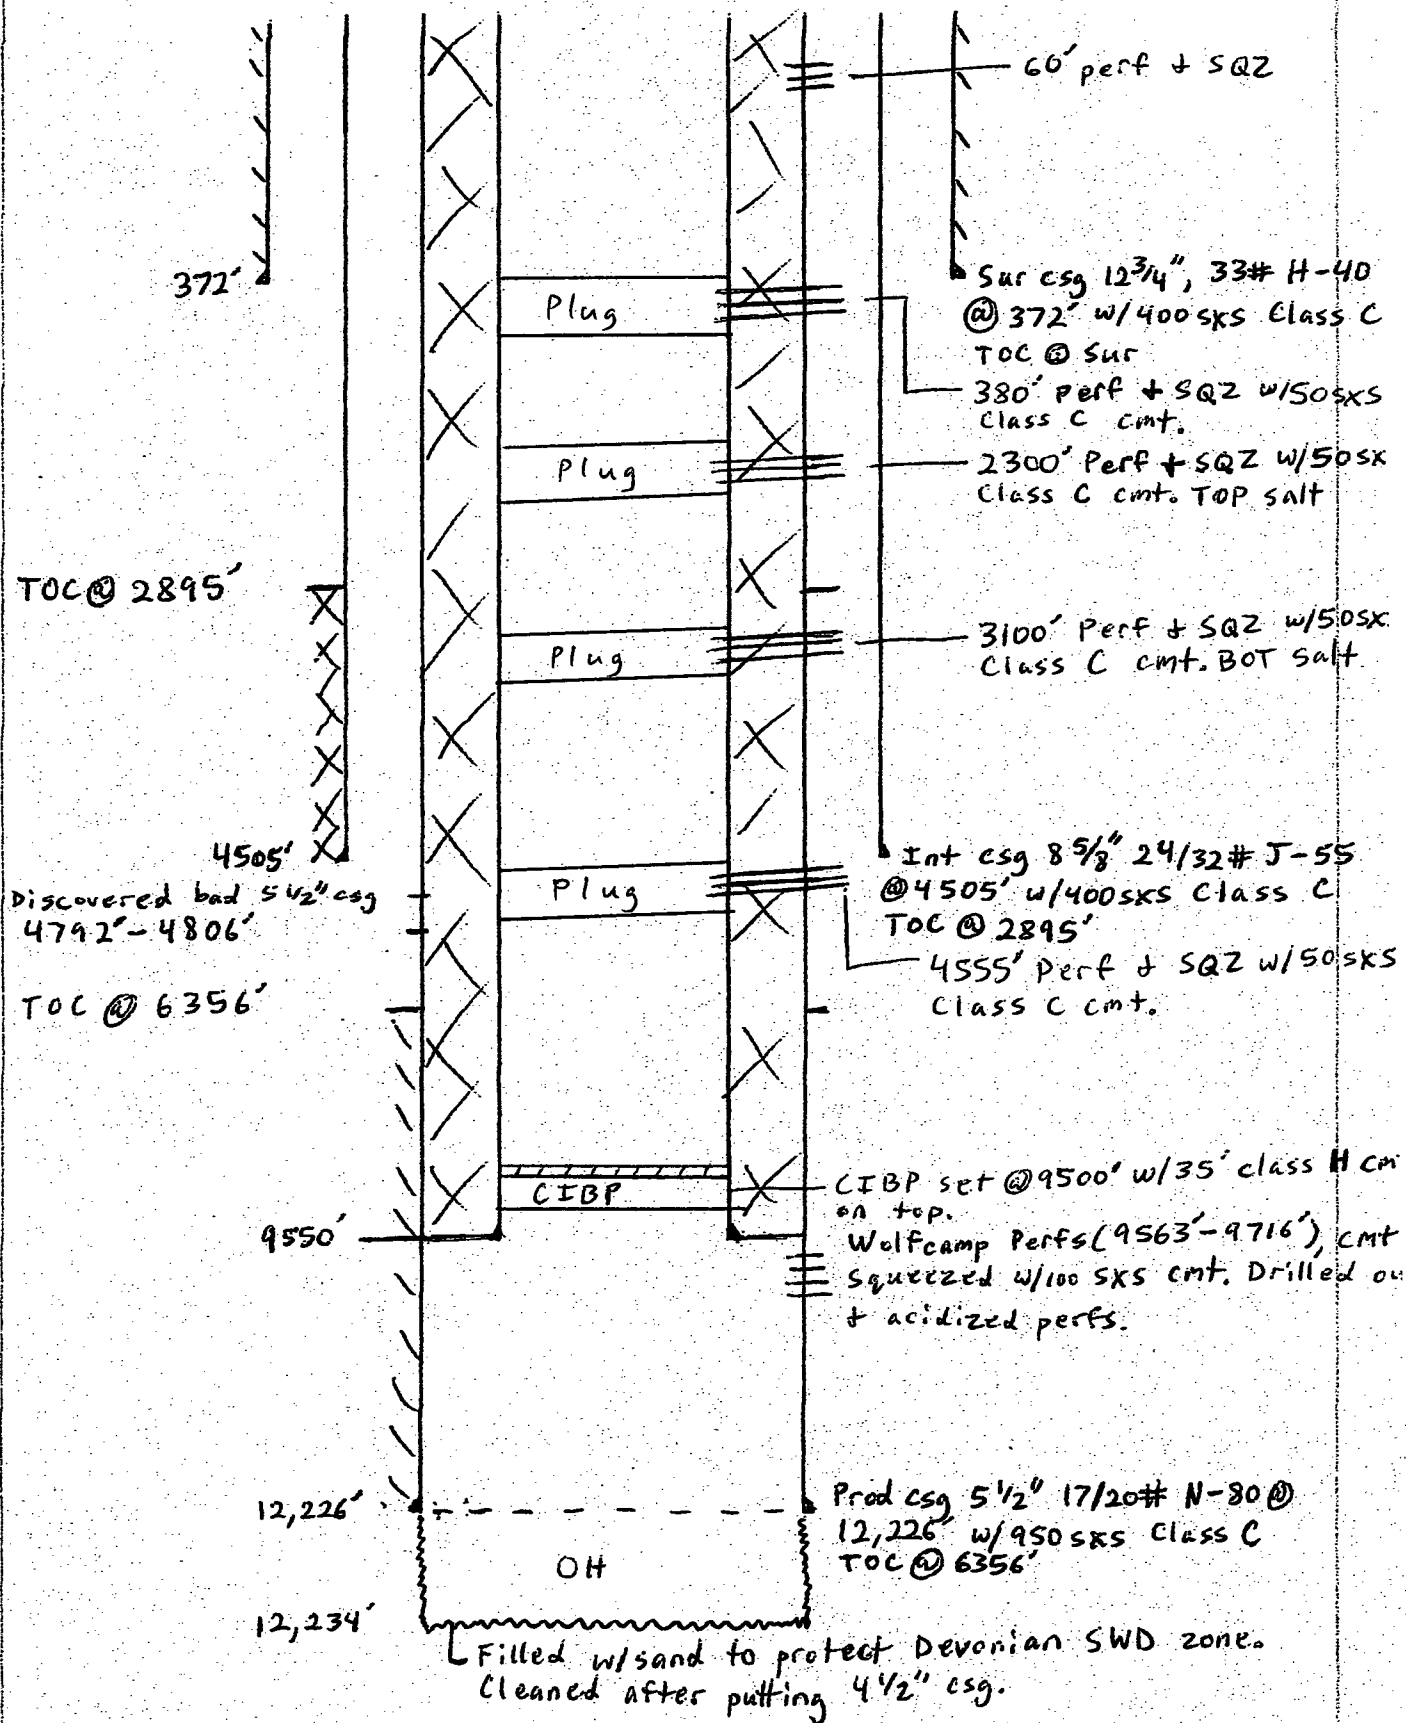 60' perf + SQZ
372'
Sur csg 12 3/4", 33# H-40
@ 372' w/400 sxs Class C
TOC @ Sur
Plug
380' Perf + SQZ w/50sxs
Class C cmt.
Plug
2300' Perf + SQZ w/50sx
Class C cmt. TOP salt
TOC@ 2895'
Plug
3100' Perf + SQZ w/50sx.
Class C cmt. BOT Salt
4505'
Int csg 8 5/8" 24/32# J-55
@4505' w/400sxs Class C
TOC @ 2895'
Plug
Discovered bad 5 1/2" csg
4792'-4806'
4555' Perf + SQZ w/50sxs
Class C cmt.
TOC @ 6356'
CIBP
CIBP set @9500' w/35' class H cm
on top.
9550'
Wolfcamp Perfs (9563'-9716'), cmt
squeezed w/100 sxs cmt. Drilled ou
+ acidized perfs.
12,226'
Prod csg 5 1/2" 17/20# N-80@
12,226' w/950sxs Class C
TOC @ 6356'
OH
12,234'
Filled w/sand to protect Devonian SWD zone.
Cleaned after putting 4 1/2" csg.